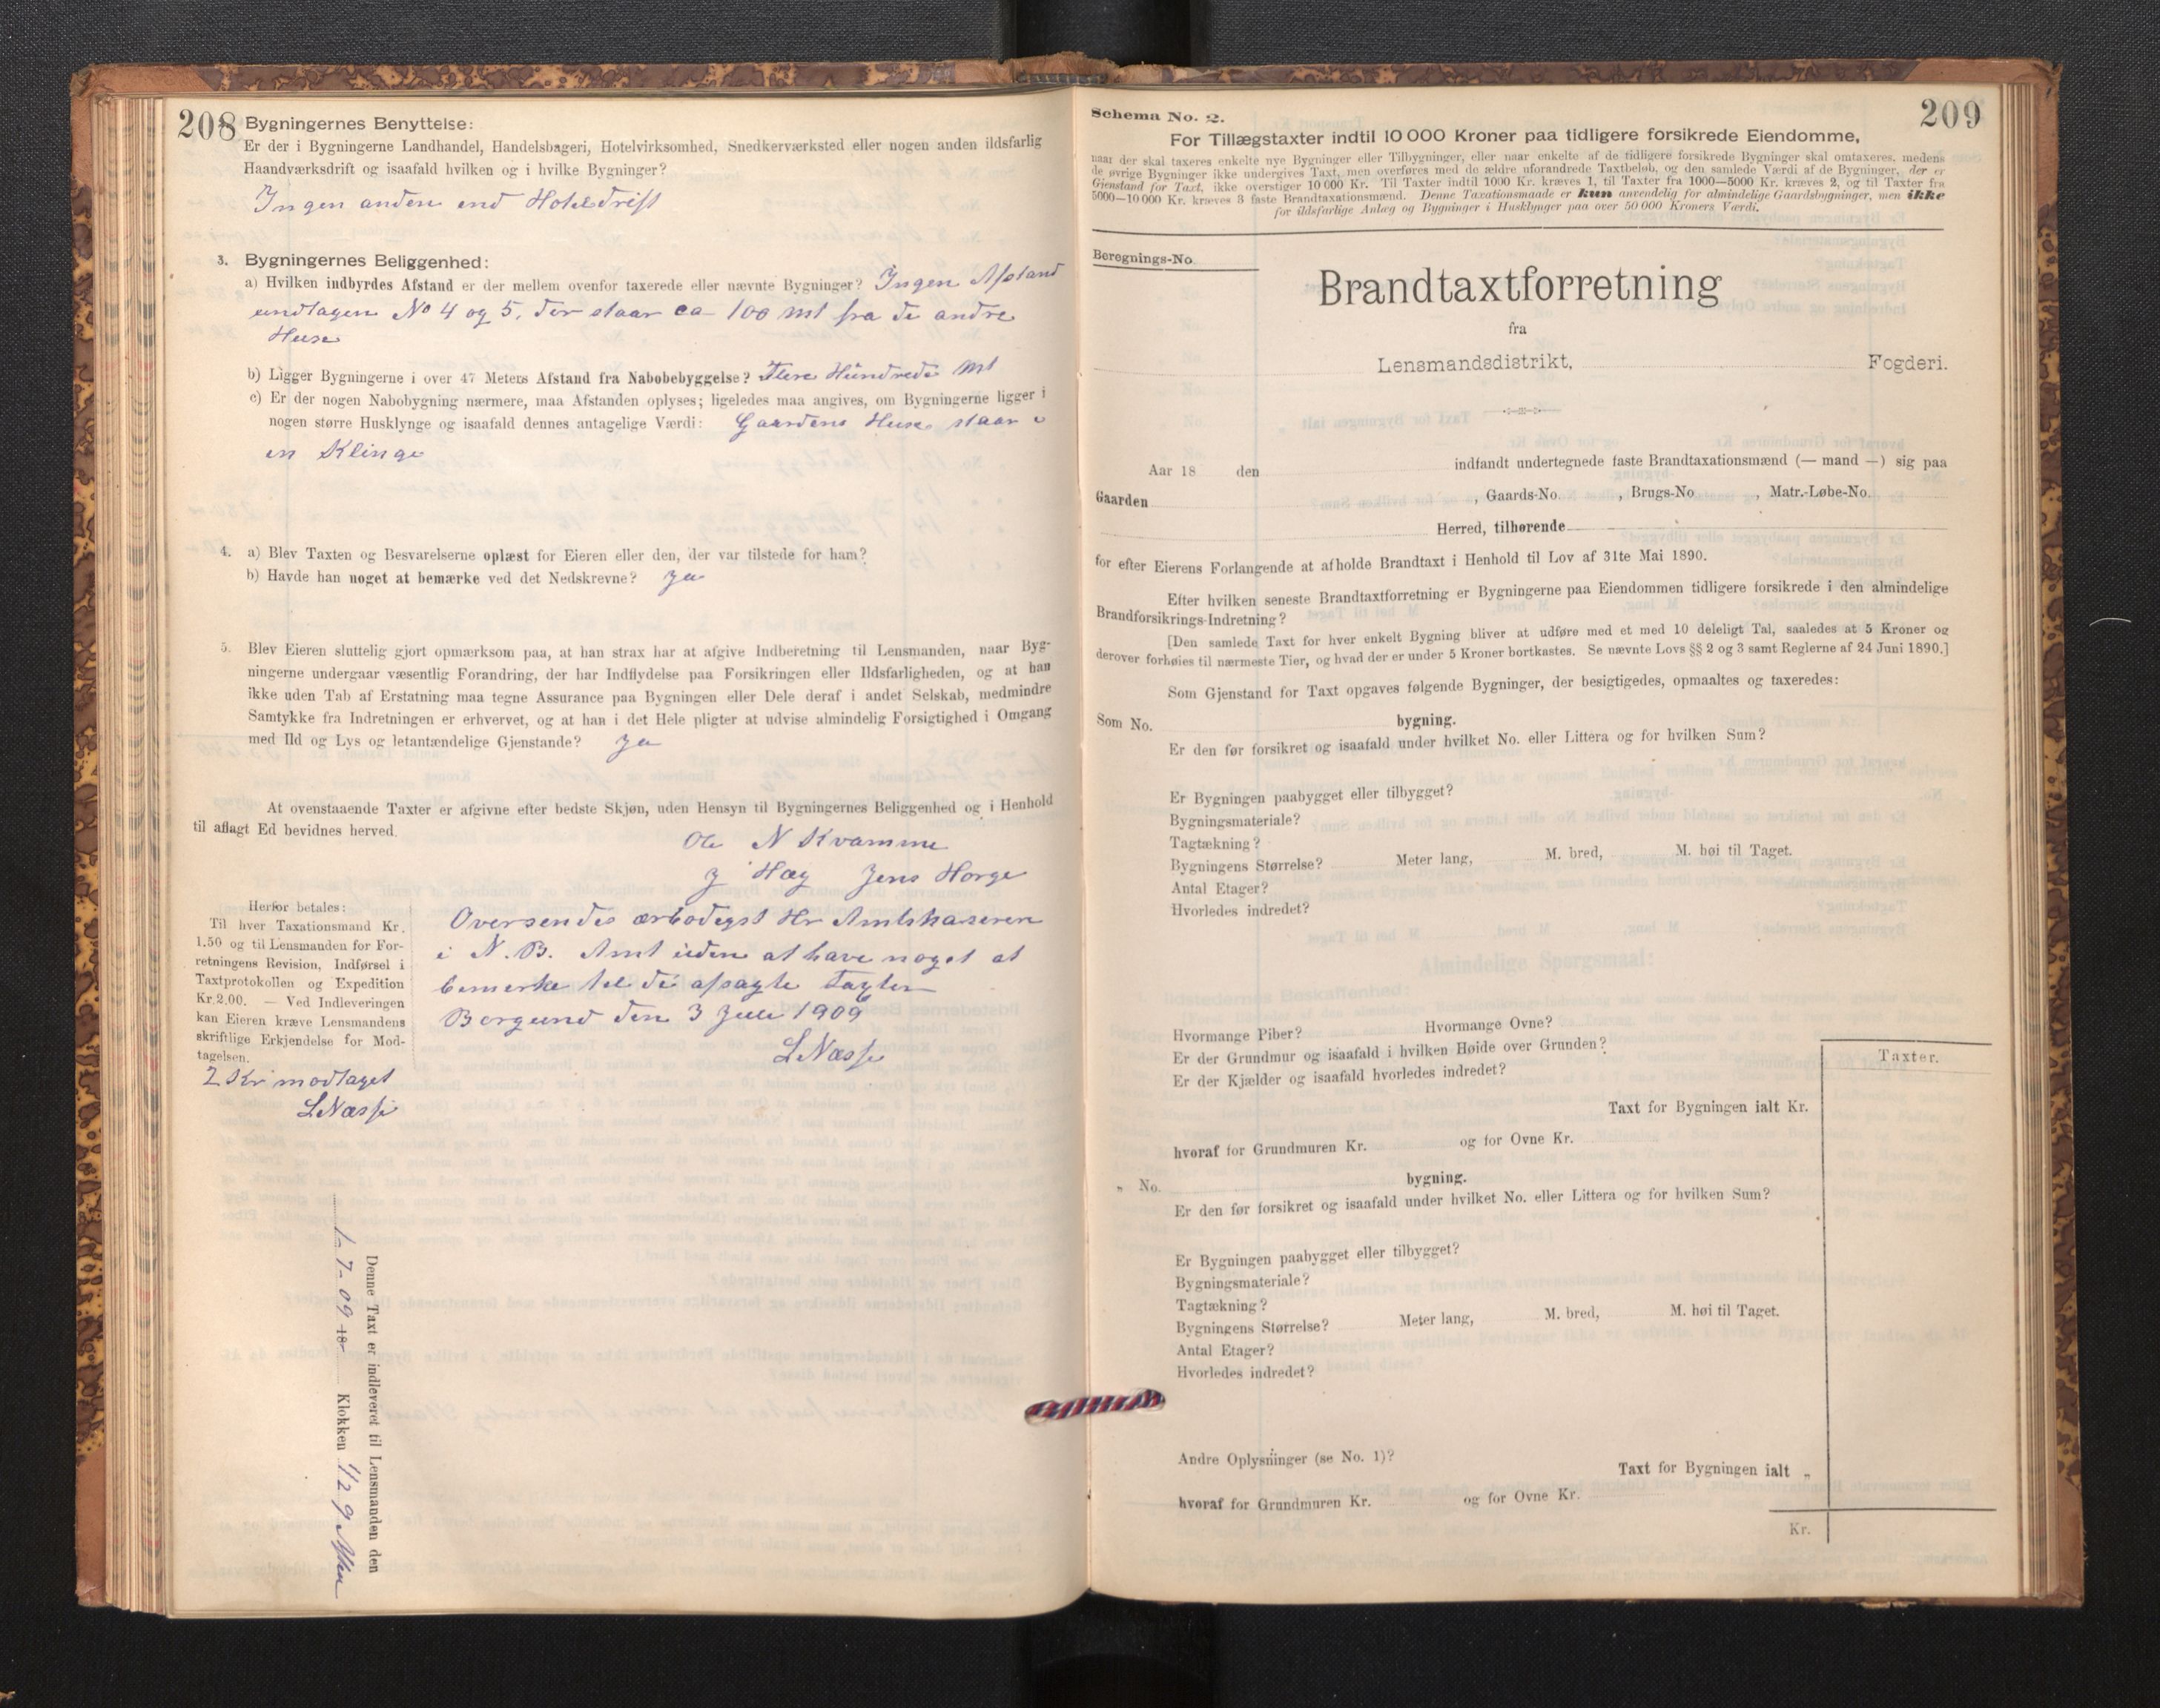 208
Bygningernes Benyttelse:
Er der i Bygningerne Landhandel, Handelsbageri, Hotelvirksomhed, Snedkerværksted eller nogen anden ildsfarlig
Haandværksdrift og isaafald hvilken og i hvilke Bygninger?
Ingen anden end Hoteldrift
3. Bygningernes Beliggenhed:
a) Hvilken indbyrdes Afstand er der mellem ovenfor taxerede eller nævnte Bygninger? Ingen Afstand
undtagen No 4 og 5, der staar ca 100 mt fra de andre
Huse
b) Ligger Bygningerne i over 47 Meters Afstand fra Nabobebyggelse? Flere Hundrede Mt
c) Er der nogen Nabobygning nærmere, maa Afstanden oplyses; ligeledes maa angives, om Bygningerne ligger i
nogen større Husklynge og isaafald dennes antagelige Værdi: Gaardens Huse staar i
en Klinge
4. a) Blev Taxten og Besvarelserne oplæst for Eieren eller den, der var tilstede for ham?
b) Havde han noget at bemærke ved det Nedskrevne? Ja
5. Blev Eieren sluttelig gjort opmærksom paa, at han strax har at afgive Indberetning til Lensmanden, naar Byg-
ningerne undergaar væsentlig Forandring, der har Indflydelse paa Forsikringen eller Ildsfarligheden, og at han
ikke uden Tab af Erstatning maa tegne Assurance paa Bygningen eller Dele deraf i andet Selskab, medmindre
Samtykke fra Indretningen er erhvervet, og at han i det Hele pligter at udvise almindelig Forsigtighed i Omgang
med Ild og Lys og letantændelige Gjenstande? Ja
At ovenstaaende Taxter er afgivne efter bedste Skjøn, uden Hensyn til Bygningernes Beliggenhed og i Henhold
til aflagt Ed bevidnes herved.
Ole N Kvamme
J Hæg Jens Horge
Herfor betales:
Til hver Taxationsmand Kr.
1.50 og til Lensmanden for For-
retningens Revision, Indførsel i
Taxtprotokollen og Expedition
Kr. 2.00. — Ved Indleveringen
kan Eieren kræve Lensmandens
skriftlige Erkjendelse for Mod-
tagelsen.
2 Kr modtaget
L Næsse
Oversendes ærbødigst Hr Amtskaserer
i N. B. Amt uden at have noget at
bemerke til de afsagte Taxter
Borgund den 3 Juli 1909
L Næsse
Denne Taxt er indleveret til Lensmanden den
1-7-09 18 Klokken 1/2 9 Aften
209
Schema No. 2.
For Tillægstaxter indtil 10 000 Kroner paa tidligere forsikrede Eiendomme,
naar der skal taxeres enkelte nye Bygninger eller Tilbygninger, eller naar enkelte af de tidligere forsikrede Bygninger skal omtaxeres, medens
de øvrige Bygninger ikke undergives Taxt, men overføres med de ældre uforandrede Taxtbeløb, og den samlede Værdi af de Bygninger, der er
Gjenstand for Taxt, ikke overstiger 10 000 Kr. Til Taxter indtil 1000 Kr. kræves 1, til Taxter fra 1000—5000 Kr. kræves 2, og til Taxter fra
5000—10 000 Kr. kræves 3 faste Brandtaxationsmænd. Denne Taxationsmaade er kun anvendelig for almindelige Gaardsbygninger, men ikke
for ildsfarlige Anlæg og Bygninger i Husklynger paa over 50 000 Kroners Værdi.
Beregnings-No
Brandtaxtforretning
fra
Lensmandsdistrikt, Fogderi.
Aar 18 den indfandt undertegnede faste Brandtaxationsmænd (— mand —) sig paa
Gaarden , Gaards-No. , Brugs-No , Matr.-Løbe-No.
Herred, tilhørende
for efter Eierens Forlangende at afholde Brandtaxt i Henhold til Lov af 31te Mai 1890.
Efter hvilken seneste Brandtaxtforretning er Bygningerne paa Eiendommen tidligere forsikrede i den almindelige
Brandforsikrings-Indretning?
[Den samlede Taxt for hver enkelt Bygning bliver at udføre med et med 10 deleligt Tal, saaledes at 5 Kroner og
derover forhøies til nærmeste Tier, og hvad der er under 5 Kroner bortkastes. Se nævnte Lovs §§ 2 og 3 samt Reglerne af 24 Juni 1890.]
Som Gjenstand for Taxt opgaves følgende Bygninger, der besigtigedes, opmaaltes og taxeredes:
Som No. bygning.
Er den før forsikret og isaafald under hvilket No. eller Littera og for hvilken Sum?
Er Bygningen paabygget eller tilbygget?
Bygningsmateriale?
Tagtækning?
Bygningens Størrelse? Meter lang, M. bred, M. høi til Taget.
Antal Etager?
Hvorledes indredet?
Hvormange Piber? Hvormange Ovne?
Er der Grundmur og isaafald i hvilken Høide over Grunden?
Er der Kjælder og isaafald hvorledes indredet?
Taxter.
Taxt for Bygningen ialt Kr.
hvoraf for Grundmuren Kr. og for Ovne Kr.
„ No. bygning.
Er den før forsikret og isaafald under hvilket No. eller Littera og for hvilken Sum?
Er Bygningen paabygget eller tilbygget?
Bygningsmateriale?
Tagtækning?
Bygningens Størrelse? Meter lang, M. bred, M. høi til Taget.
Antal Etager?
Hvorledes indredet?
Andre Oplysninger (se No. 1)?
Taxt for Bygningen ialt „
hvoraf for Grundmuren Kr. og for Ovne Kr.
Kr.